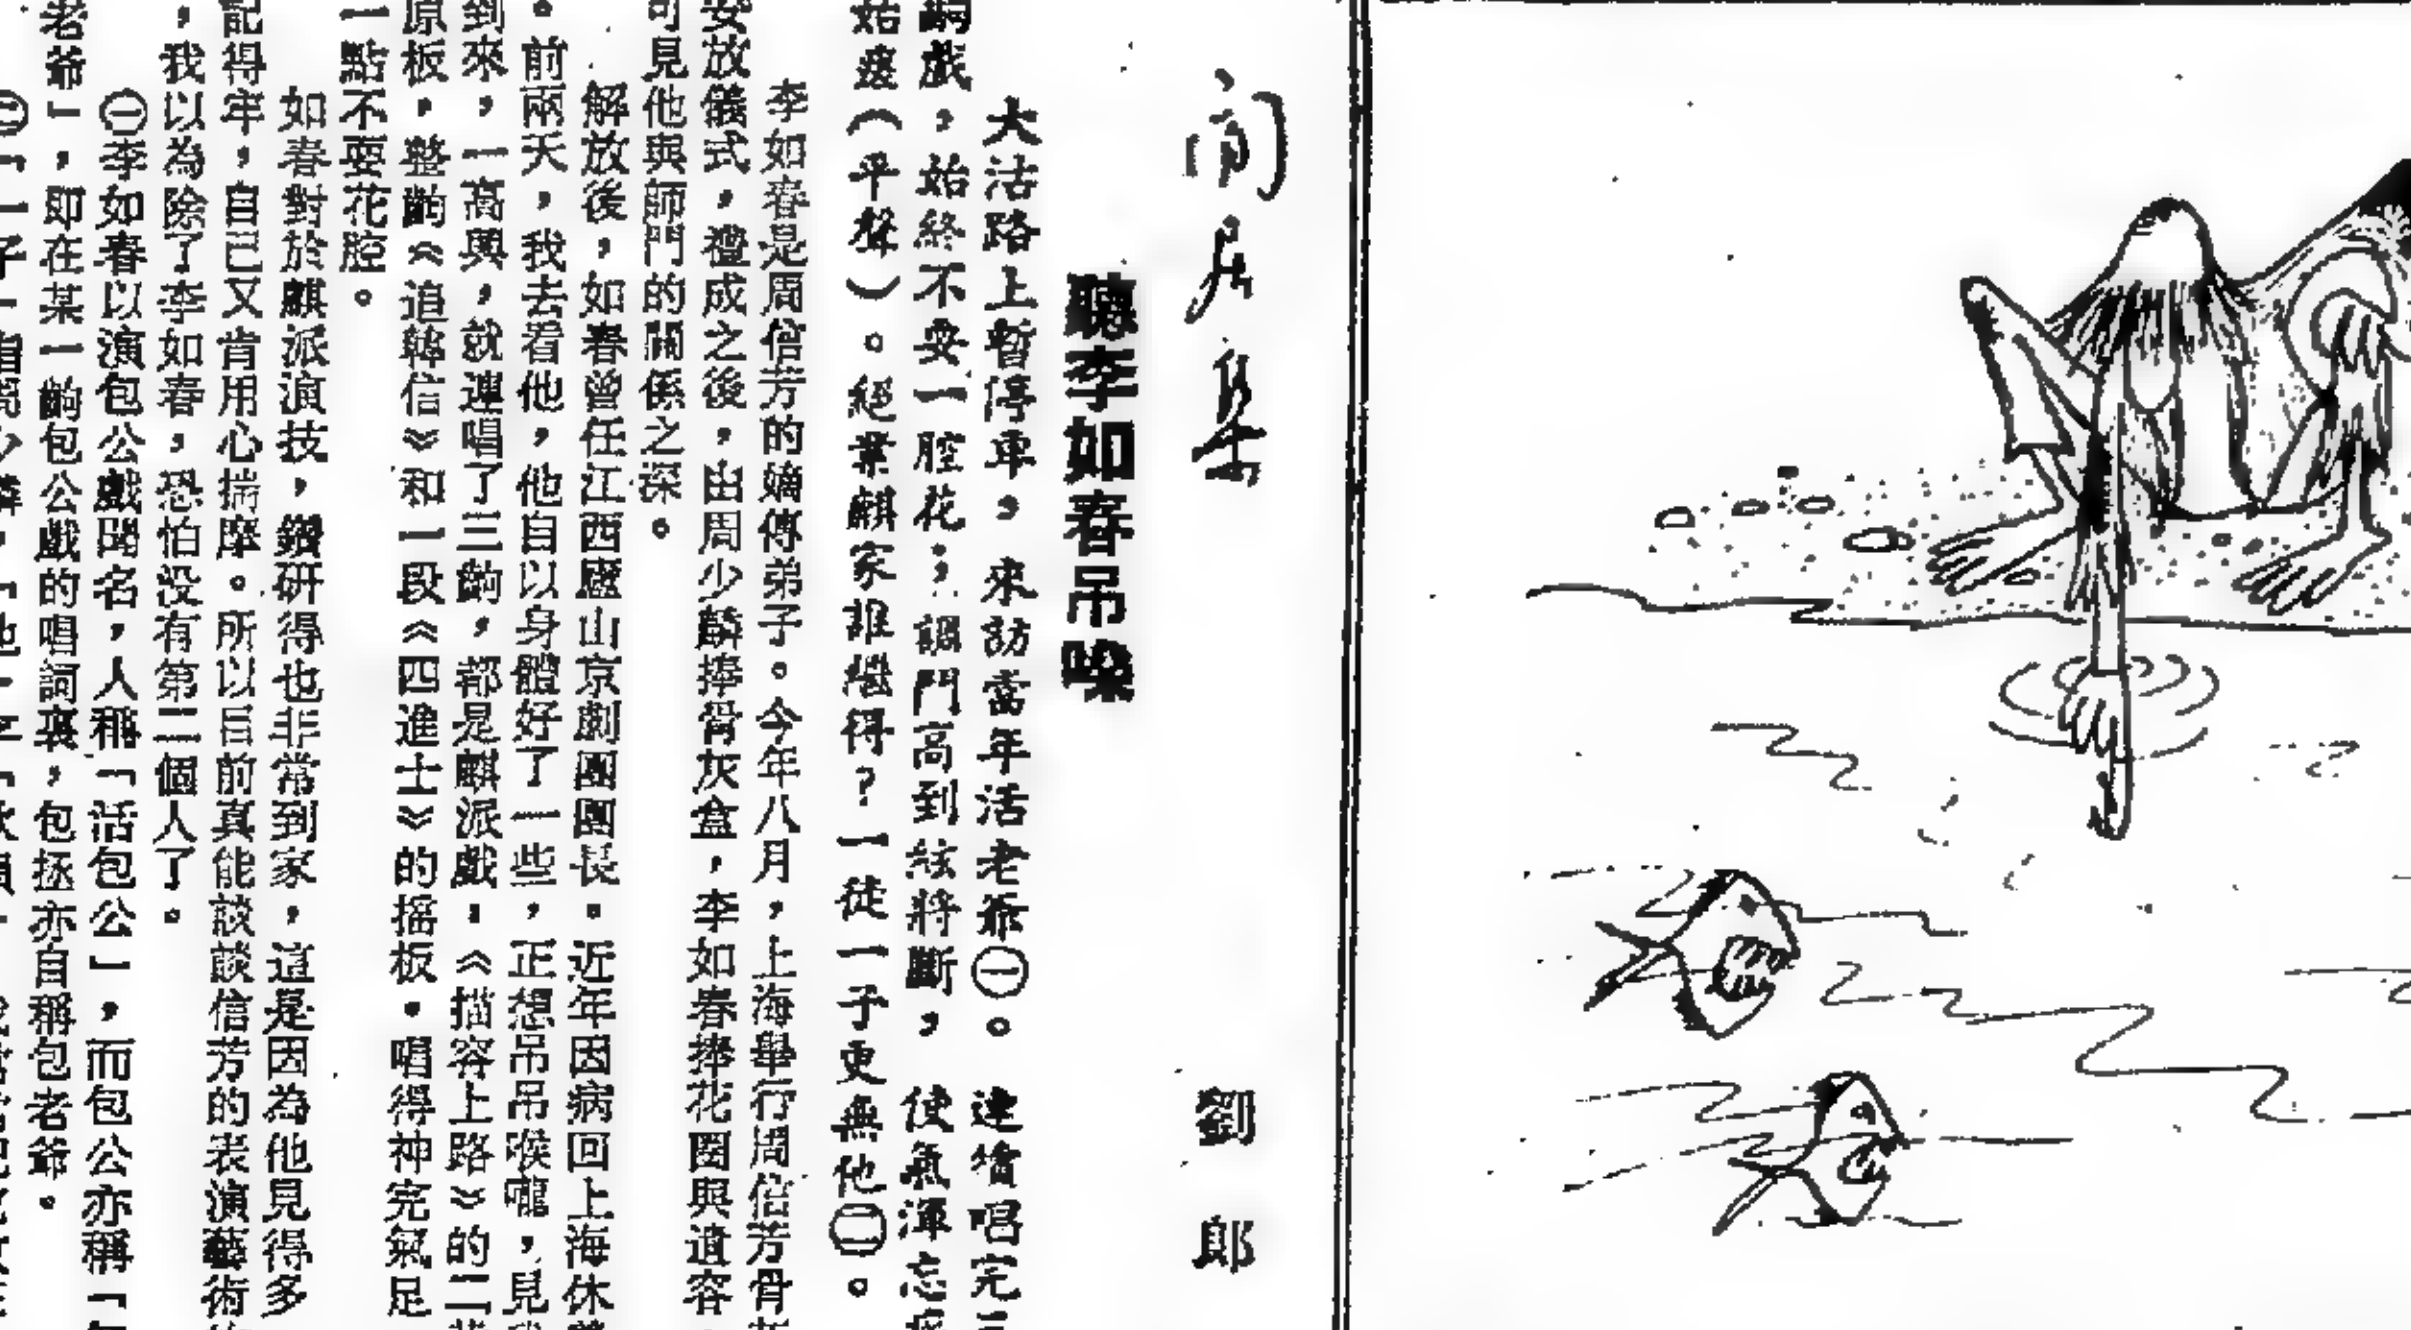 閑居集
劉郎
聽李如春吊嗓
大沽路上暫停車，來訪當年活老爺㊀。連擋唱完三
齣戲，始終不要一腔花；調門高到絃將斷，使氣渾忘
姑護（平聲）。絕業麒家誰繼得？一徒一子更無他㊁。
李如春是周信芳的嫡傳弟子。今年八月，上海舉行周信芳骨
安放儀式，禮成之後，由周少麟捧骨灰盒，李如春捧花圈與遺容，
可見他與師門的關係之深。
解放後，如春曾任江西廬山京劇團團長。近年因病回上海休
。前兩天，我去看他，他自以身體好了一些，正想吊吊喉嚨，見
到來，一高興，就連唱了三齣，都是麒派戲：《描容上路》的二
原板，整齣《追韓信》和一段《四進士》的搖板。唱得神完氣足
一點不要花腔。
如春對於麒派演技，鑽研得也非常到家，這是因為他見得多
記得牢，自己又肯用心揣摩。所以目前真能談談信芳的表演藝術
，我以為除了李如春，恐怕沒有第二個人了。
㊀李如春以演包公戲聞名，人稱「活包公」，而包公亦稱「
老爺」，即在某一齣包公戲的唱詞裏，包拯亦自稱包老爺。